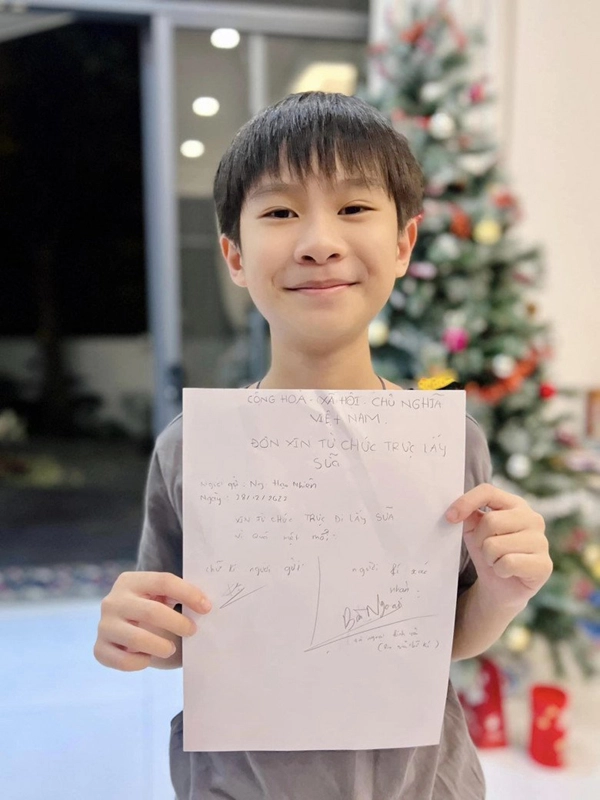 CÔNG HOÀ - XÃ HỘI - CHỦ NGHĨA
VIỆT NAM.
ĐƠN XIN TỪ CHỨC TRỰC LẤY
SỮA
Ngày : 28/12/2023
XIN TỪ CHỨC TRỰC ĐI LẤY SỮA
vì quá mệt mỏi.
chữ kí người gửi
người kí xác
nhận
Bà Ngoại